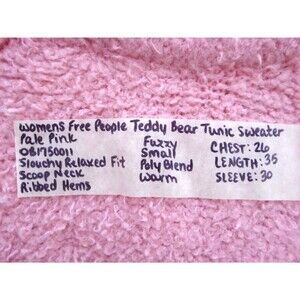 Womens Free People Teddy Bear Tunic Sweater
Pale Pink
OB1750011
Slouchy Relaxed Fit
Scoop Neck
Ribbed Hems
Fuzzy
Small
Poly Blend
Warm
CHEST: 26
LENGTH: 35
SLEEVE: 30